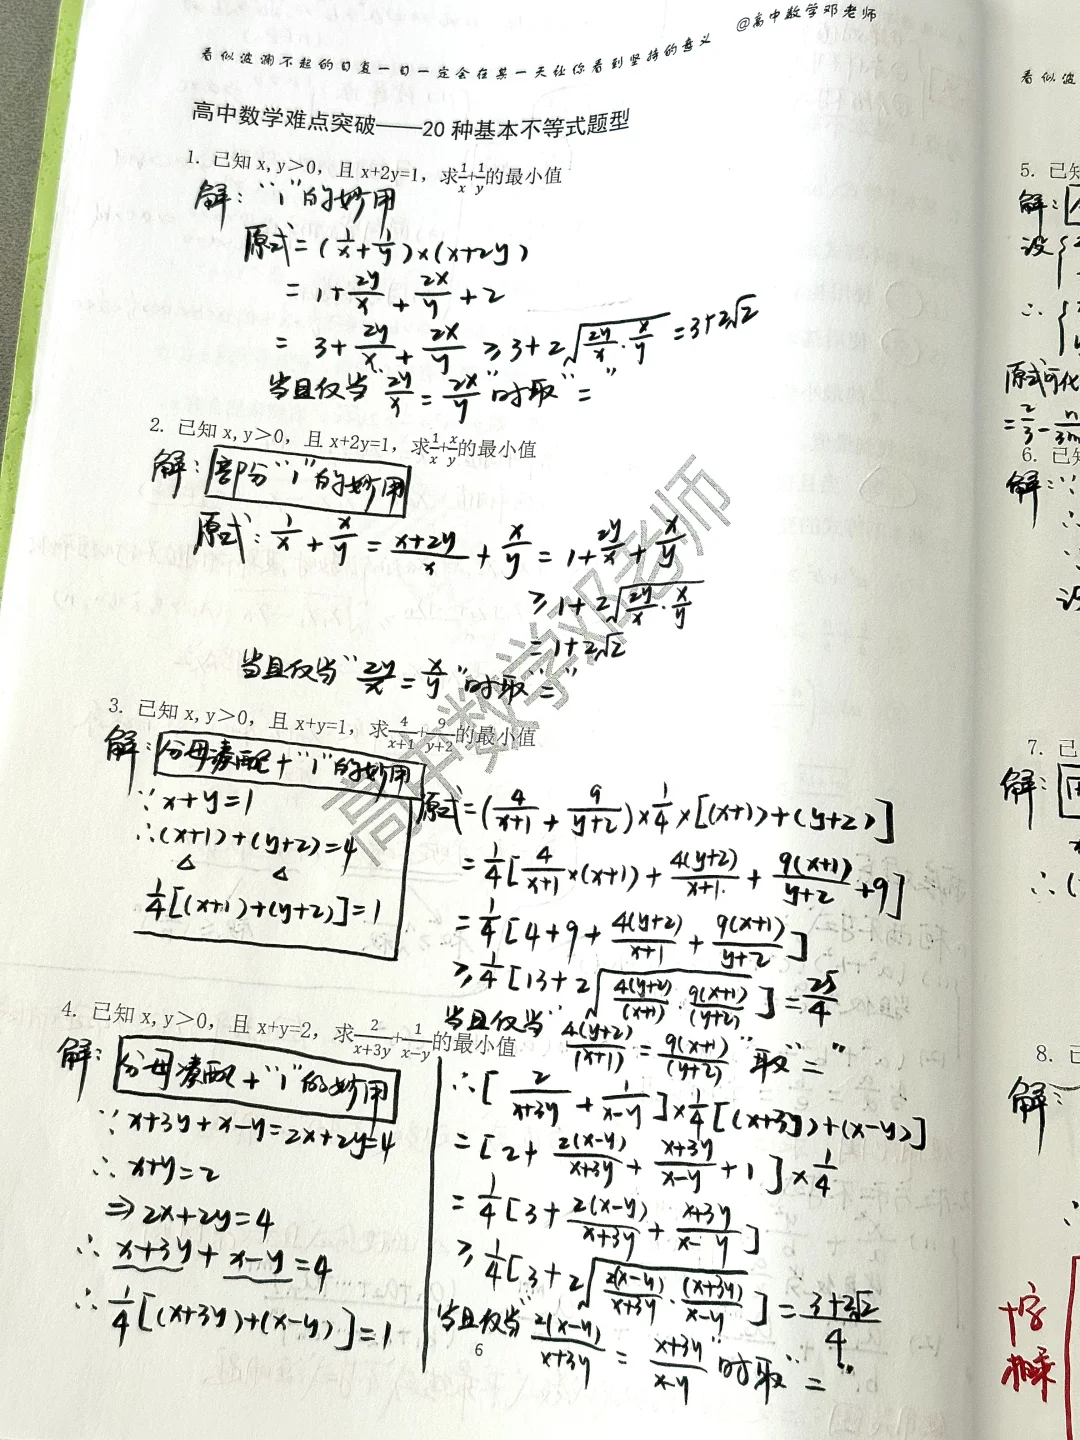 @高中数学邓老师
看似波澜不起的日复一日一定会在某一天让你看到坚持的意义
高中数学难点突破——20 种基本不等式题型
1. 已知 x,y＞0，且 x+2y=1，求1/x+1/y的最小值
解："1"的妙用
原式=(1/x+1/y)×(x+2y)
=1+2y/x+2x/y+2
=3+2y/x+2x/y≥3+2√(2y/x·x/y)=3+2√2
当且仅当"2y/x=2x/y"时取"="
2. 已知 x,y＞0，且 x+2y=1，求1/x+x/y的最小值
解：部分"1"的妙用
原式：1/x+x/y=(x+2y)/x+x/y=1+2y/x+x/y
≥1+2√(2y/x·x/y)
=1+2√2
当且仅当"2y/x=x/y"时取"="
3. 已知 x,y＞0，且 x+y=1，求4/(x+1)+9/(y+2)的最小值
解：分母凑配+"1"的妙用
∵x+y=1
∴(x+1)+(y+2)=4
1/4[(x+1)+(y+2)]=1
原式=(4/(x+1)+9/(y+2))×1/4×[(x+1)+(y+2)]
=1/4[4/(x+1)×(x+1)+4(y+2)/(x+1)+9(x+1)/(y+2)+9]
=1/4[4+9+4(y+2)/(x+1)+9(x+1)/(y+2)]
≥1/4[13+2√(4(y+2)/(x+1)·9(x+1)/(y+2))]=25/4
当且仅当"4(y+2)/(x+1)=9(x+1)/(y+2)"取"="
4. 已知 x,y＞0，且 x+y=2，求2/(x+3y)+1/(x−y)的最小值
解：分母凑配+"1"的妙用
∵x+3y+x-y=2x+2y=4
∴x+y=2
⇒2x+2y=4
∴x+3y+x-y=4
∴1/4[(x+3y)+(x-y)]=1
∴[2/(x+3y)+1/(x-y)]×1/4[(x+3y)+(x-y)]
=[2+2(x-y)/(x+3y)+(x+3y)/(x-y)+1]×1/4
=1/4[3+2(x-y)/(x+3y)+(x+3y)/(x-y)]
≥1/4[3+2√(2(x-y)/(x+3y)·(x+3y)/(x-y))]=(3+2√2)/4
当且仅当"2(x-y)/(x+3y)=(x+3y)/(x-y)"时取"="
6
高中数学邓老师
看似波
5. 已知
解：
设
∴
原式可化
6. 已知
解：∵
∴
7. 已
解：
∴
8. 已
解：
十字
相乘